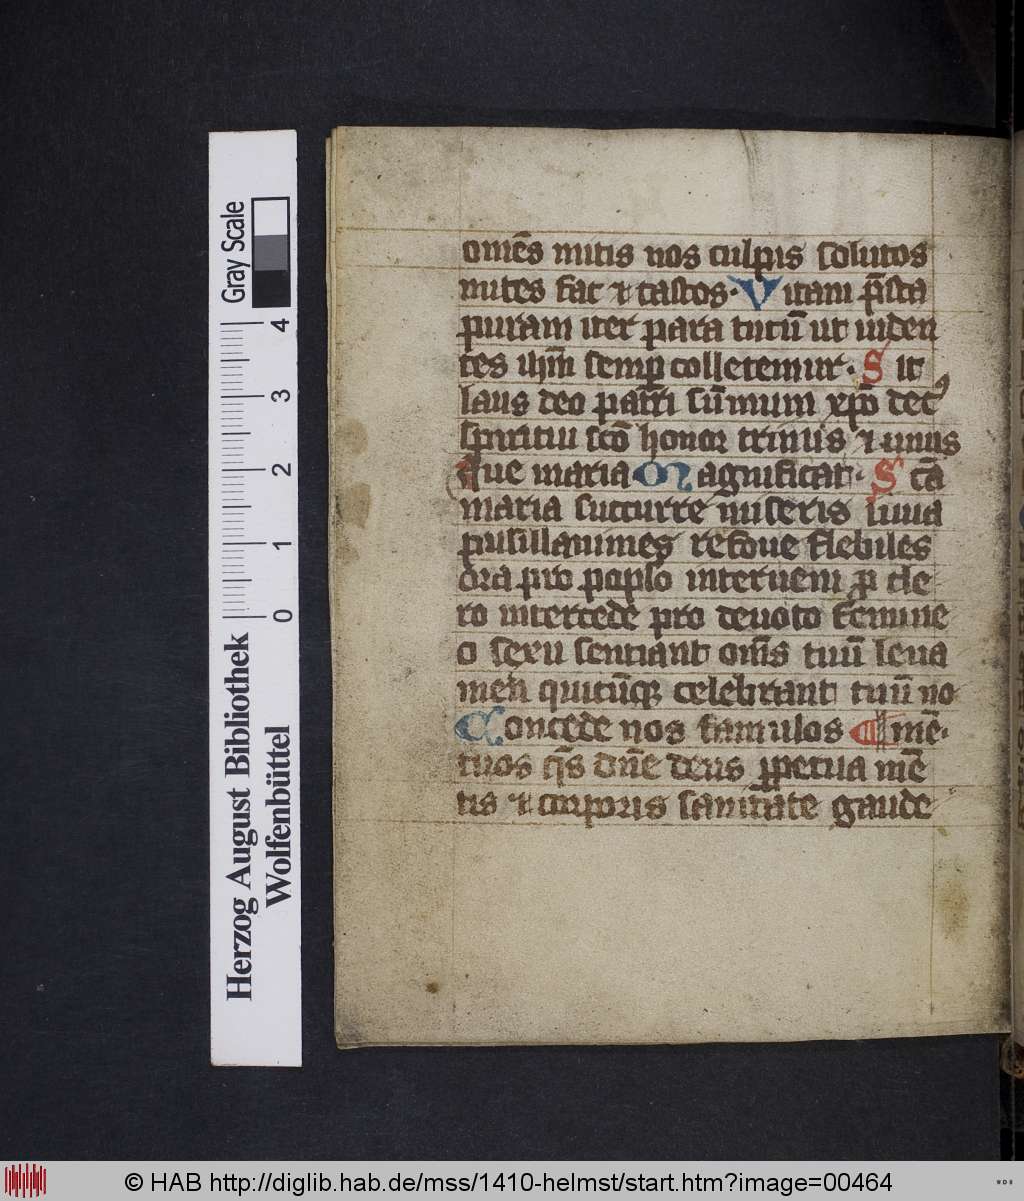 om̄es mitis nos culpis solutos
mites fac ⁊ castos. Vitam p̄sta
puram iter para tutū ut uiden
tes ih̄m semꝑ colletemur. Sit
laus deo patri sūmum xp̄o decꝰ
spiritui sc̄o honor trinus ⁊ unus
Aue maria Magnificat. Sc̄a
maria succurre miseris iuua
pusillanimes refoue flebiles
ora pro poplo interueni ꝓ cle
ro intercede pro deuoto femine
o sexu sentiant om̄s tuū leua
men quicūqꝫ celebrant tuū no
Concede nos famulos ¶ mē.
tuos q̄s dn̄e deus ꝑpetua mē
tis ⁊ corporis sanitate gaude
Herzog August Bibliothek
Wolfenbüttel
0 1 2 3 4
Gray Scale
© HAB http://diglib.hab.de/mss/1410-helmst/start.htm?image=00464